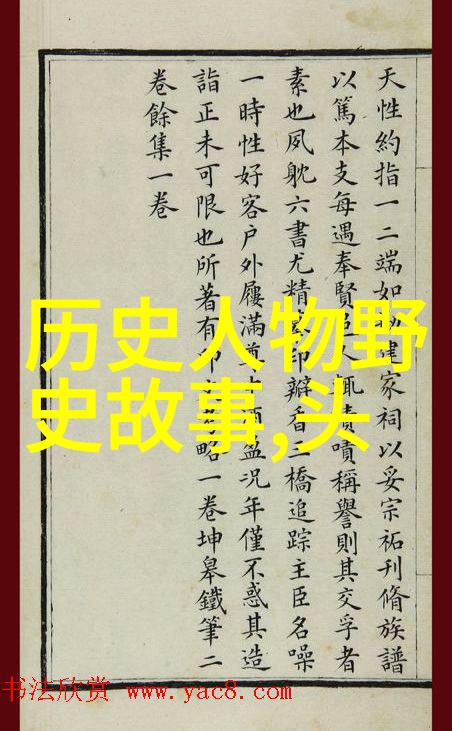 天性約指一二端如建家祠以妥宗祏刊脩族譜
以篤本支每遇奉賢邑人輒嘖嘖稱譽則其交孚者
素也夙躭六書尤精印瓣香三橋追踪主臣名噪
一時性好客户外屨滿尊酒盈况年僅不惑其造
詣正未可限也所著有印考略一卷坤皋鐵筆二
卷餘集一卷
历史人物野
史故事,头
书法欣赏 www.yac8.com